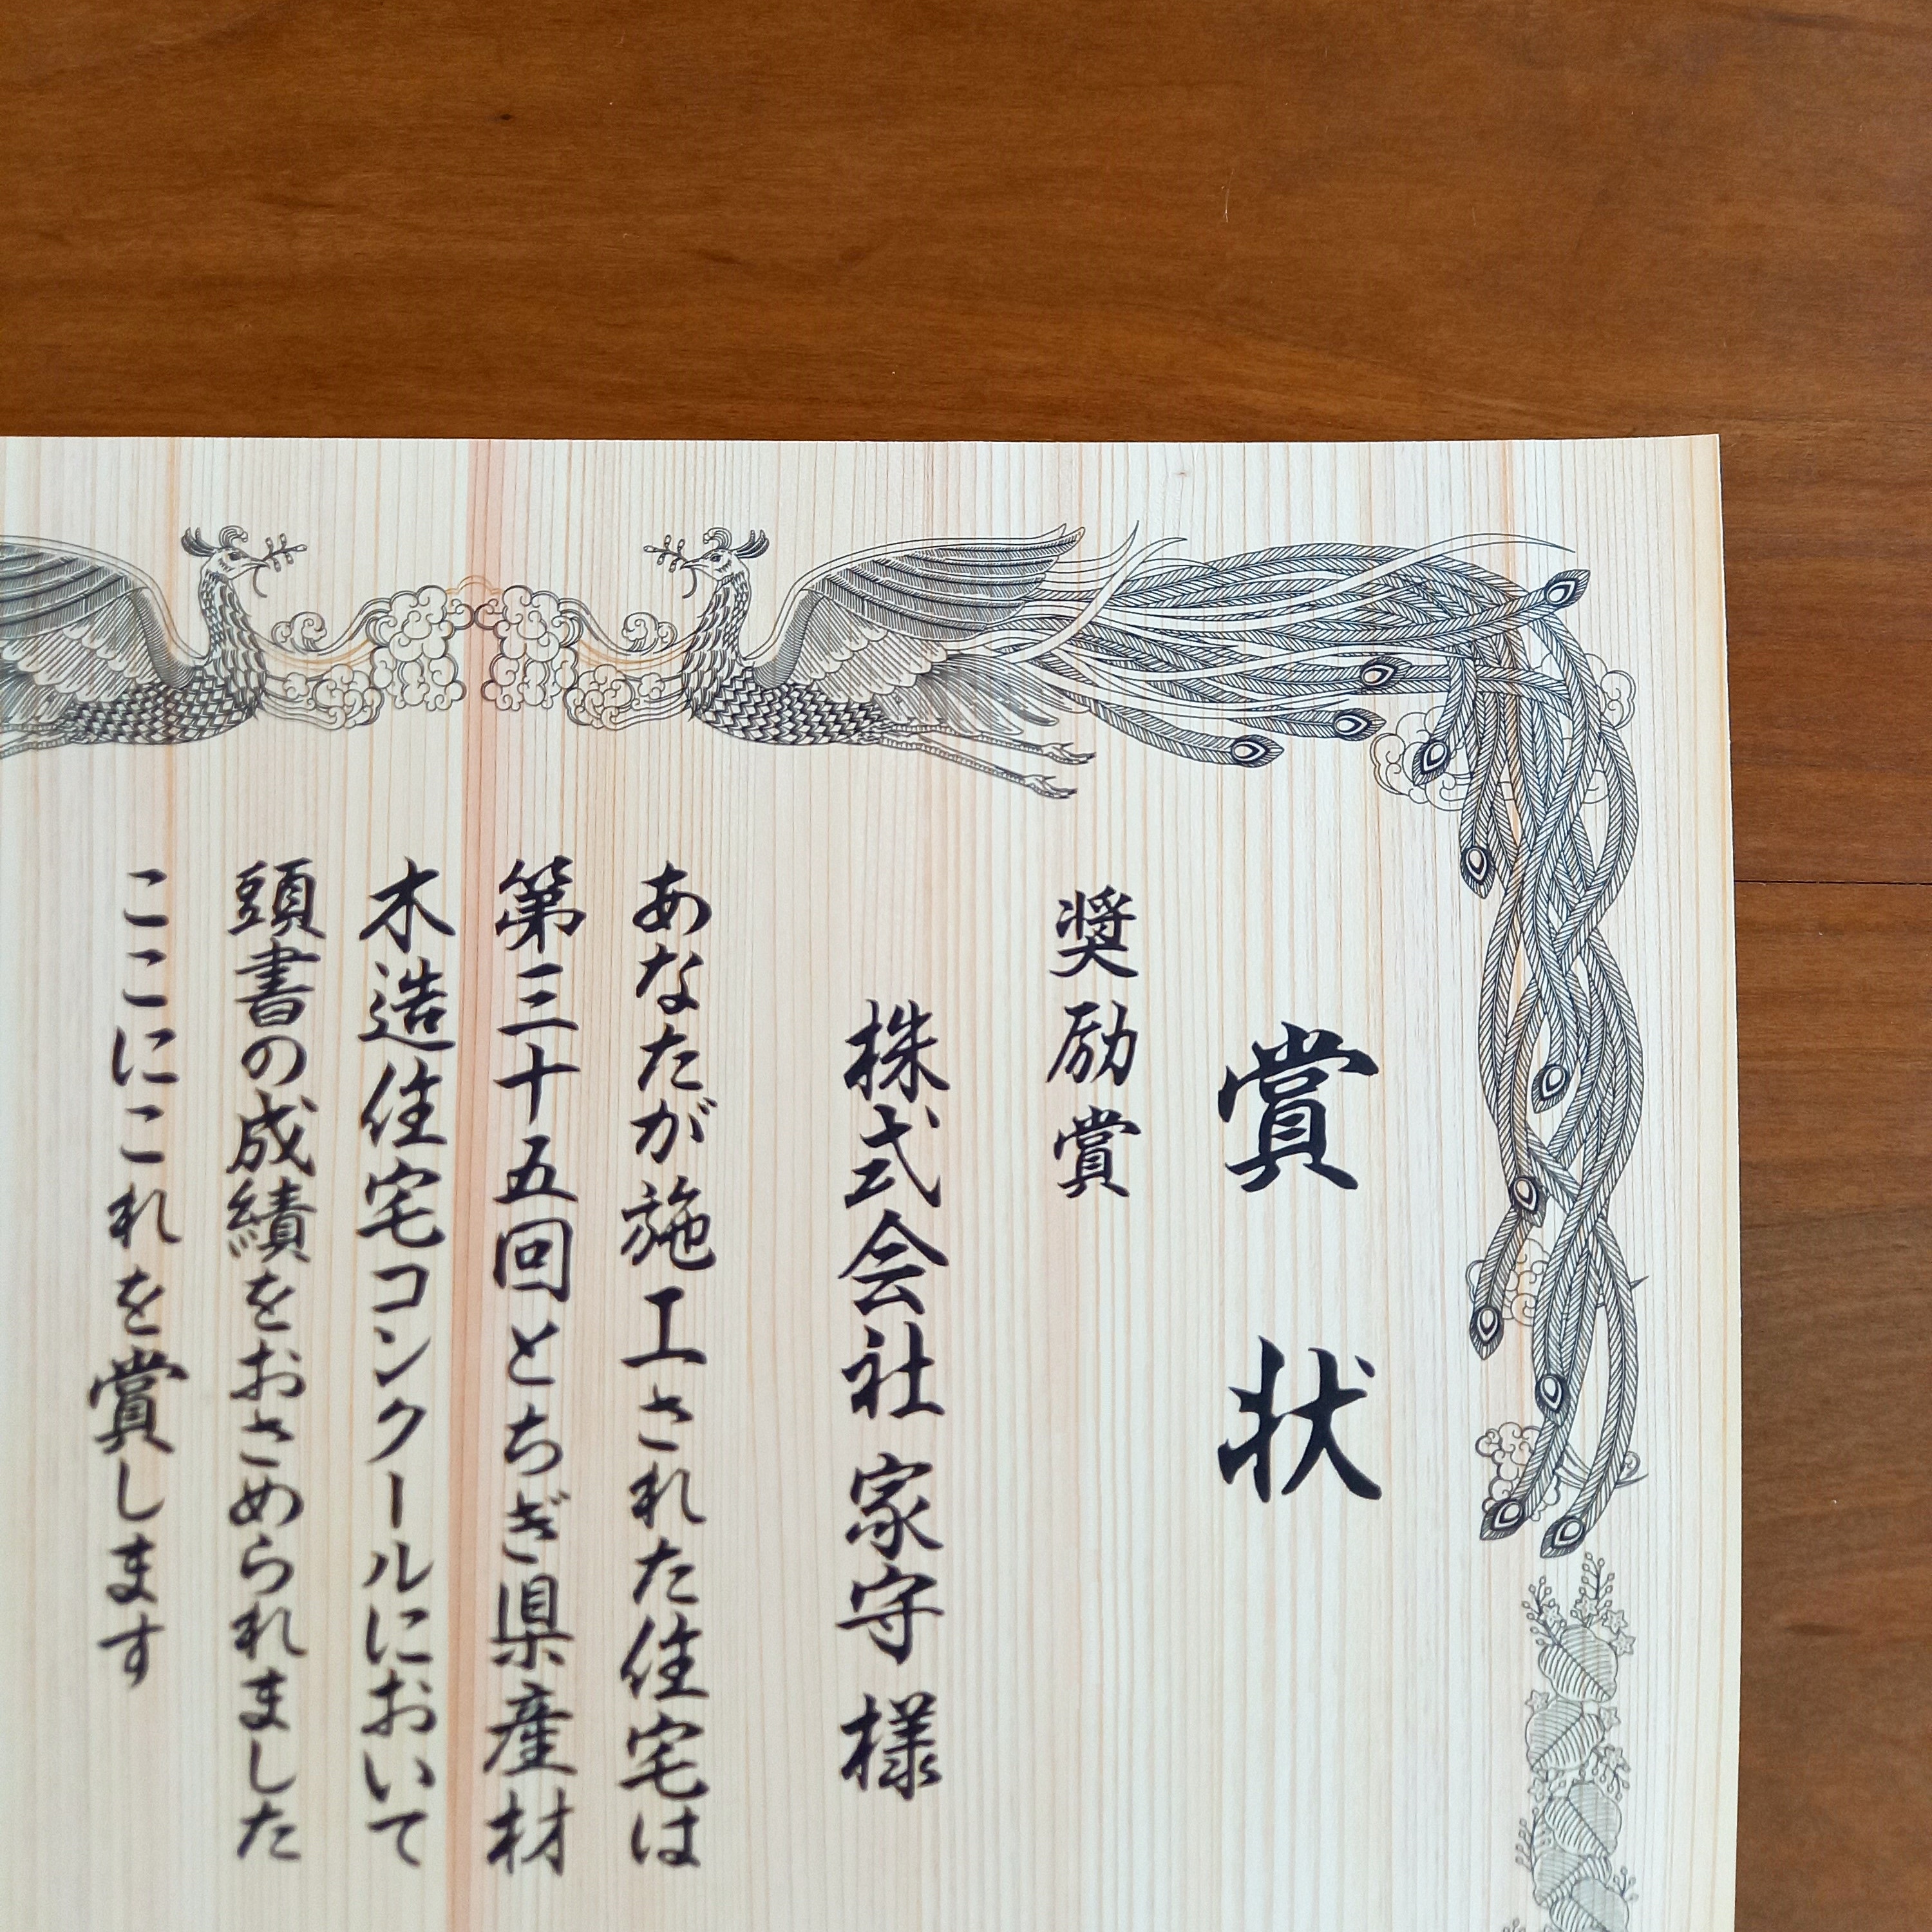 賞状
奨励賞
株式会社 家守 様
あなたが施工された住宅は
第三十五回とちぎ県産材
木造住宅コンクールにおいて
頭書の成績をおさめられました
ここにこれを賞します